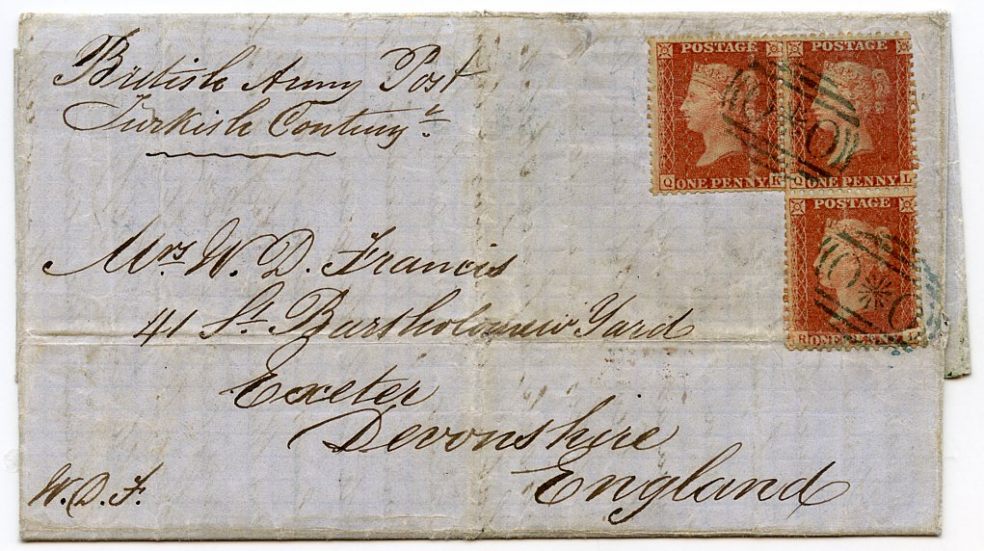 British Army Post
Turkish Conting.t
Mrs W. D. Francis
41 St. Bartholomew Yard
Exeter
Devonshire
England
W. D. F.
POSTAGE POSTAGE
Q ONE PENNY K Q ONE PENNY L
POSTAGE
R ONE PENNY L
O*O
O*O